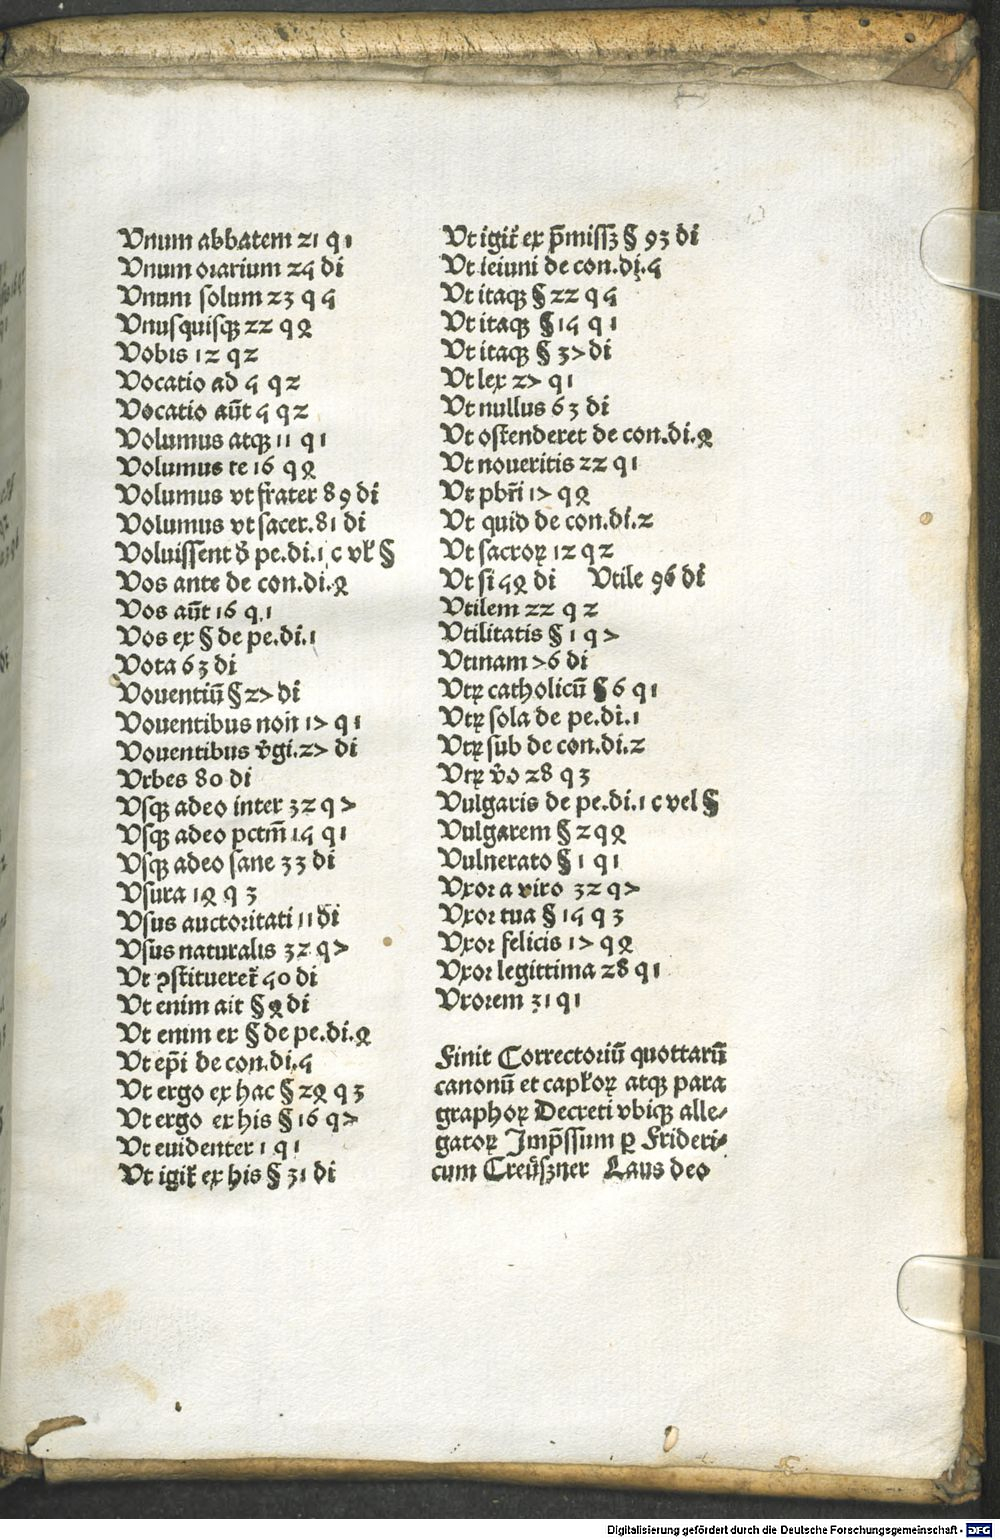 Vnum abbatem 21 q 1
Vnum orarium 24 di
Vnum solum 23 q 4
Vnusquisqꝫ 22 q 2
Vobis 12 q 2
Vocatio ad 4 q 2
Vocatio aūt 4 q 2
Volumus atqꝫ 11 q 1
Volumus te 16 q 2
Volumus vt frater 89 di
Volumus vt sacer. 81 di
Voluissent ỽ pe.di.1 c vł §
Vos ante de con.di.2
Vos aūt 16 q.1
Vos ex § de pe.di.1
Vota 63 di
Voventiū § 27 di
Voventibus non 17 q 1
Voventibus v̄gi.27 di
Vrbes 80 di
Vsqꝫ adeo inter 32 q 7
Vsqꝫ adeo pctm̄ 14 q 1
Vsqꝫ adeo sane 33 di
Vsura 14 q 3
Vsus auctoritati 11 di
Vsus naturalis 32 q 7
Vt ꝯstitueret̄ 40 di
Vt enim ait § 9 di
Vt enim ex § de pe.di.2
Vt ep̄i de con.di.4
Vt ergo ex hac § 24 q 3
Vt ergo ex his § 16 q 7
Vt evidenter 1 q 1
Vt igit̄ ex his § 31 di
Vt igit̄ ex p̄missꝫ § 93 di
Vt ieiuni de con.di.4
Vt itaqꝫ § 22 q 4
Vt itaqꝫ § 14 q 1
Vt itaqꝫ § 37 di
Vt lex 27 q 1
Vt nullus 63 di
Vt ostenderet de con.di.2
Vt noveritis 22 q 1
Vt pbr̄i 17 q 2
Vt quid de con.di.2
Vt sacroꝝ 12 q 2
Vt si 42 di Vtile 96 di
Vtilem 22 q 2
Vtilitatis § 1 q 7
Vtinam 76 di
Vtꝝ catholicū § 6 q 1
Vtꝝ sola de pe.di.1
Vtꝝ sub de con.di.2
Vtꝝ v̄o 28 q 3
Vulgaris de pe.di.1 c vel §
Vulgarem § 2 q 2
Vulnerato § 1 q 1
Vxor a viro 32 q 7
Vxor tua § 14 q 3
Vxor felicis 17 q 2
Vxor legittima 28 q 1
Vxorem 31 q 1
Finit Correctoriū quottarū
canonū et capłoꝝ atqꝫ para
graphoꝝ Decreti vbiqꝫ alle⸗
gatoꝝ Imp̄ssum ꝑ Frideri⸗
cum Creüszner Laus deo
Digitalisierung gefördert durch die Deutsche Forschungsgemeinschaft - DFG